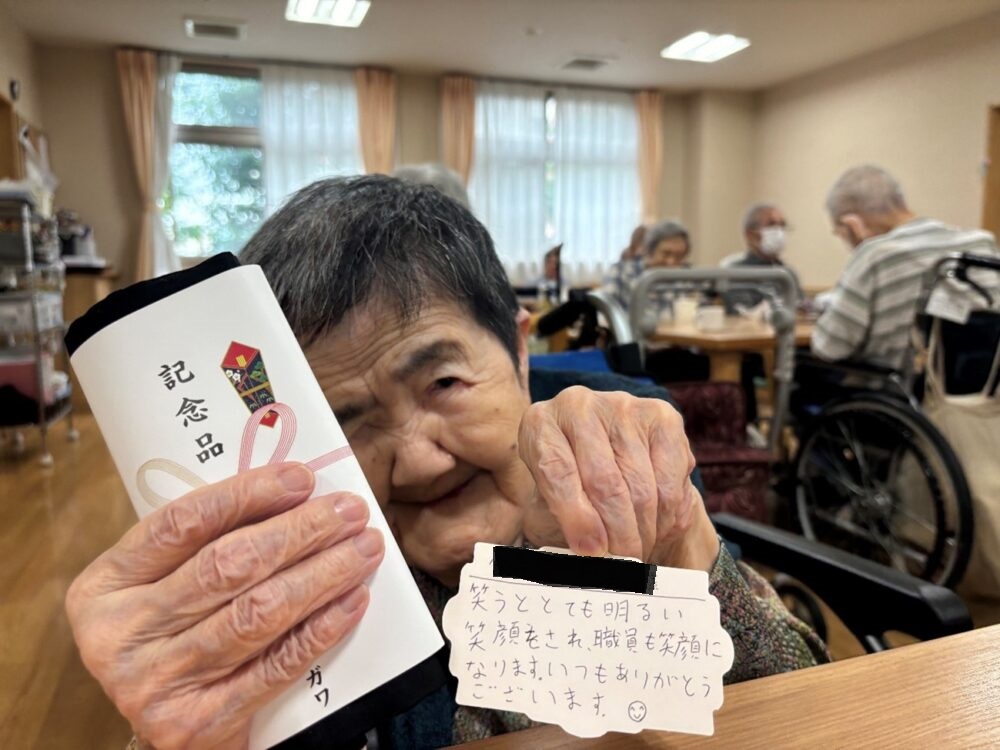 記念品
ガワ
笑うととても明るい
笑顔をされ、職員も笑顔に
なります。いつもありがとう
ございます。